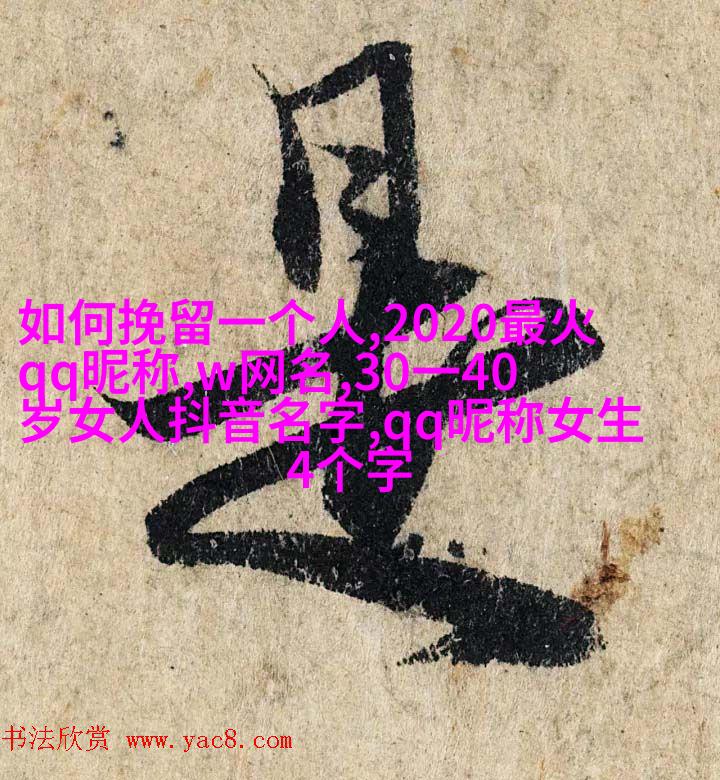 是
如何挽留一个人,2020最火
qq昵称,w网名,30一40
岁女人抖音名字,qq昵称女生
4个字
书法欣赏 www.yac8.com